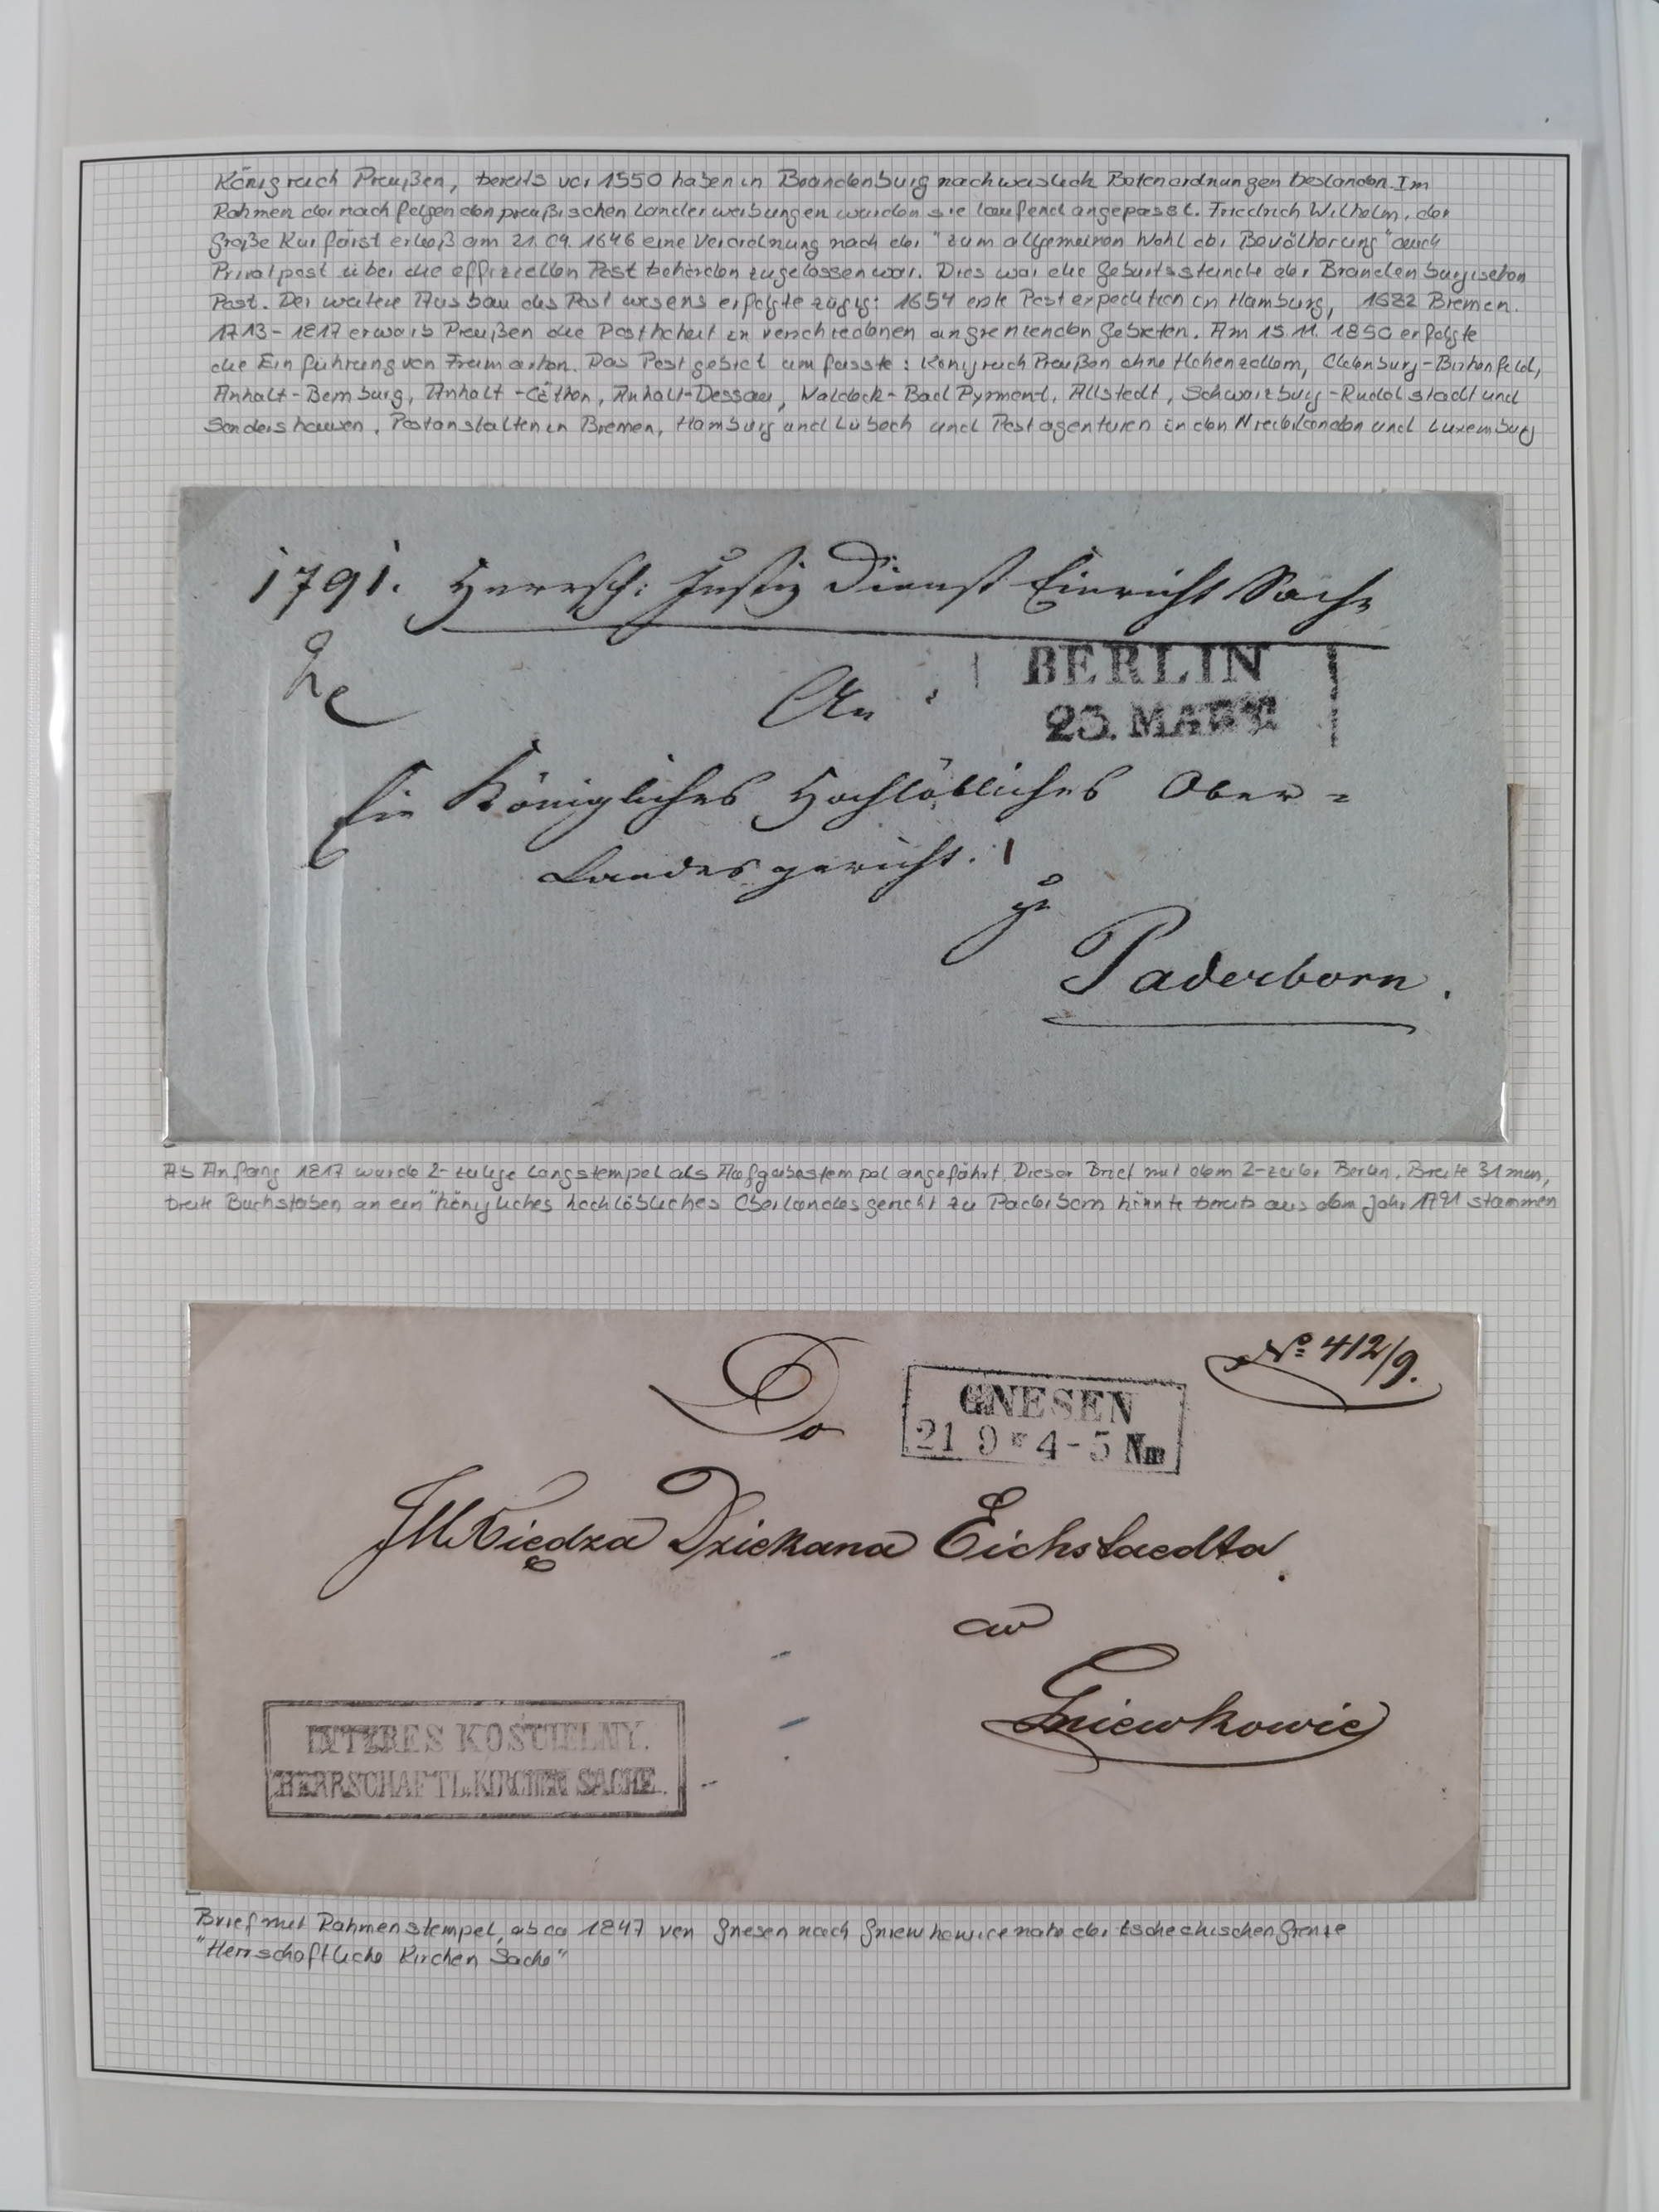 Königreich Preußen, bereits vor 1550 haben in Brandenburg nachweislich Botenordnungen bestanden. Im
Rahmen der nachfolgenden preußischen Landerwerbungen wurden sie laufend angepasst. Friedrich Wilhelm, der
große Kurfürst erließ am 21.04.1646 eine Verordnung nach der "zum allgemeinen Wohl der Bevölkerung" auch
Privatpost über die offiziellen Post behörden zugelassen war. Dies war die Geburtsstunde der Brandenburgischen
Post. Der weitere Ausbau des Postwesens erfolgte zügig: 1654 erste Postexpedition in Hamburg, 1682 Bremen.
1713-1817 erwarb Preußen die Posthoheit in verschiedenen angrenzenden Gebieten. Am 15.11.1850 erfolgte
die Einführung von Freimarken. Das Postgebiet umfasste: Königreich Preußen ohne Hohenzollern, Oldenburg-Birkenfeld,
Anhalt-Bernburg, Anhalt-Cöthen, Anhalt-Dessau, Waldeck-Bad Pyrmont, Allstedt, Schwarzburg-Rudolstadt und
Sondershausen, Postanstalten in Bremen, Hamburg und Lübeck und Postagenturen in den Niederlanden und Luxemburg
1791. Herrsch: Justiz Dienst Sache
An
BERLIN
23. MAERZ
Ein Königliches Hochlöbliches Ober=
Landesgericht.
zu
Paderborn.
Ab Anfang 1817 wurde 2-zeilige Langstempel als Aufgabestempel angeführt. Dieser Brief mit dem 2-zeiler Berlin, Breite 31 mm,
breite Buchstaben an ein "königliches hochlöbliches Oberlandesgericht zu Paderborn könnte bereits aus dem Jahr 1791 stammen
Do
GNESEN
21 9 * 4-5 Nm
No 412/9.
JMXiędza Dziekana Eichstaedta
w
Gniewkowie
INTERES KOSCIELNY.
HERRSCHAFTL.KIRCHEN SACHE.
Brief mit Rahmenstempel, ab ca 1847 von Gnesen nach Gniewkowice nahe der tschechischen Grenze
"Herrschaftliche Kirchen Sache"